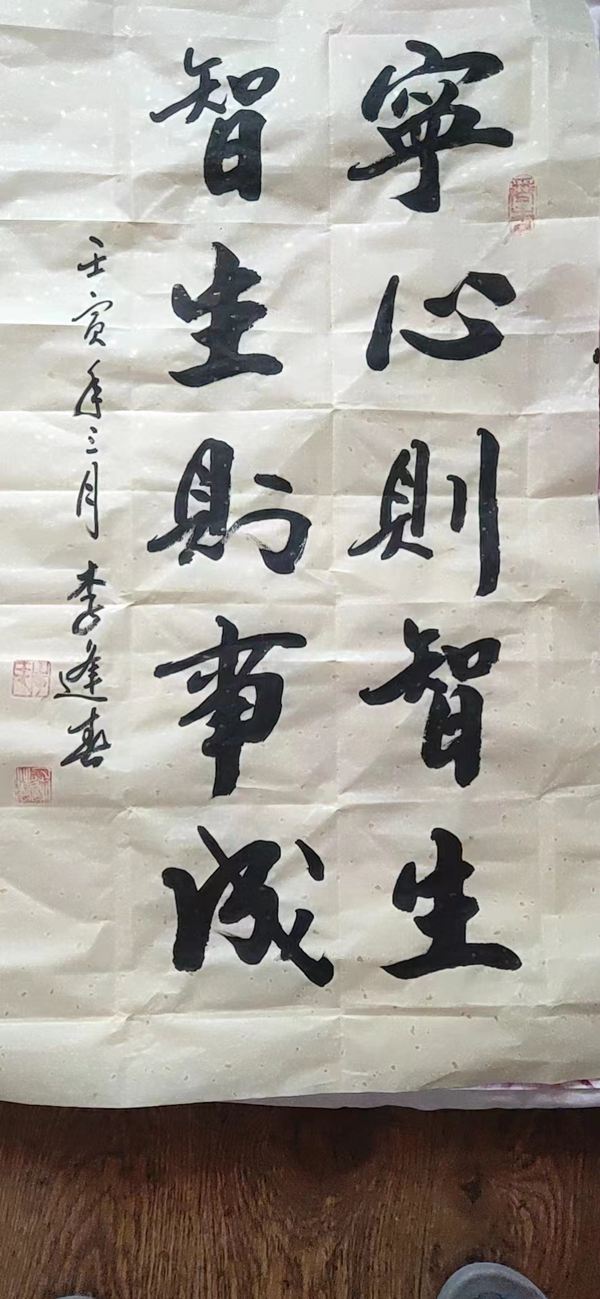 寧心則智生
智生則事成
壬寅年三月李逢春